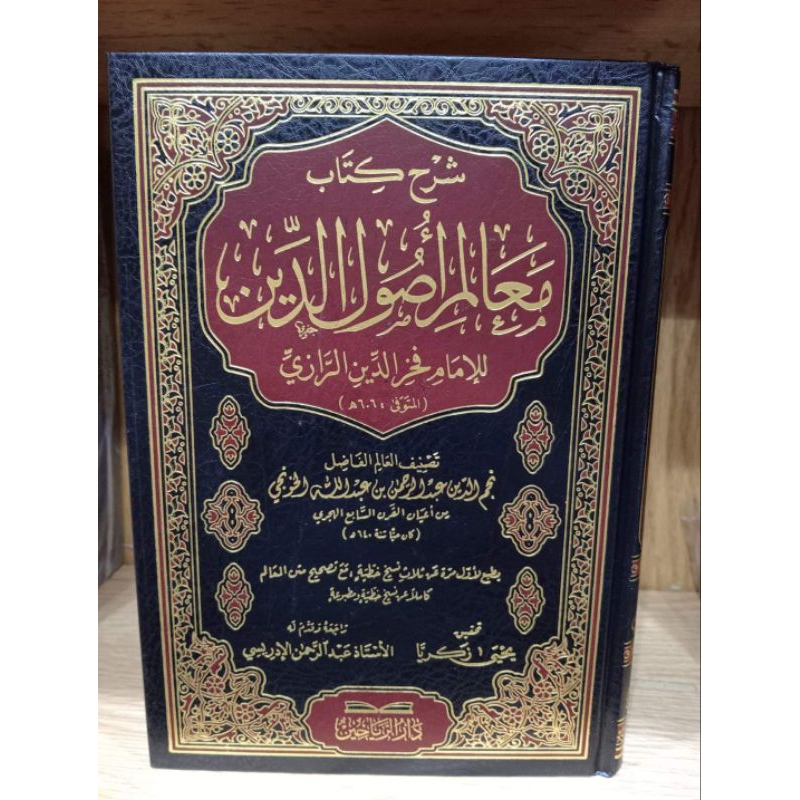 شرح كتاب
معالم أصول الدين
للإمام فخر الدين الرازي
(المتوفى: ٦٠٦هـ)
تصنيف العالم الفاضل
نجم الدين عبد الرحمن بن عبد الله الخونجي
من أعيان القرن السابع الهجري
(كان حيًّا سنة ٦٤٠هـ)
يطبع لأول مرة عن ثلاث نسخ خطية، مع تصحيح متن المعالم
كاملا عن نسخ خطية ومطبوعة
تحقيق
يحيى زكريا
راجعه وقدم له
الأستاذ عبد الرحمن الإدريسي
دار الرياحين